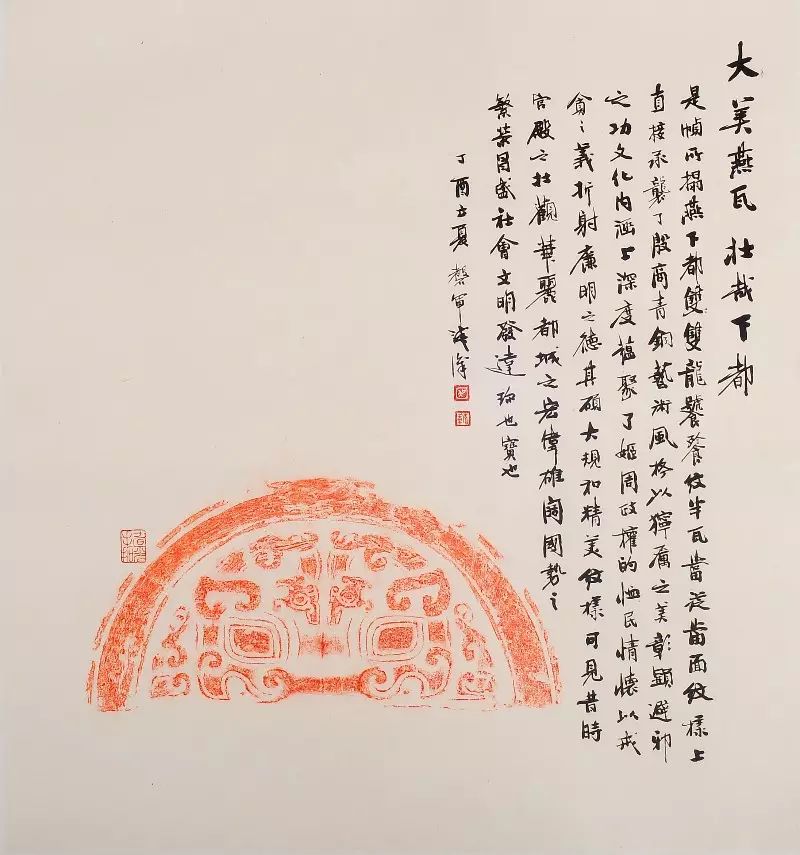 大美燕瓦 壮哉下都
是帧所搨燕下都双双龍饕餮纹半瓦當從當面纹樣上
直接承襲了殷商青銅藝術風格以獰厲之美彰顯避邪
之功文化内涵上深度蕴聚了姬周政權的恤民情懷以戒
貪之義折射廉明之德其碩大規和精美纹樣可見昔時
宫殿之壮觀華麗都城之宏偉雄闊國勢之
繁荣昌盛社會文明發達珎也寶也
丁酉立夏 軍